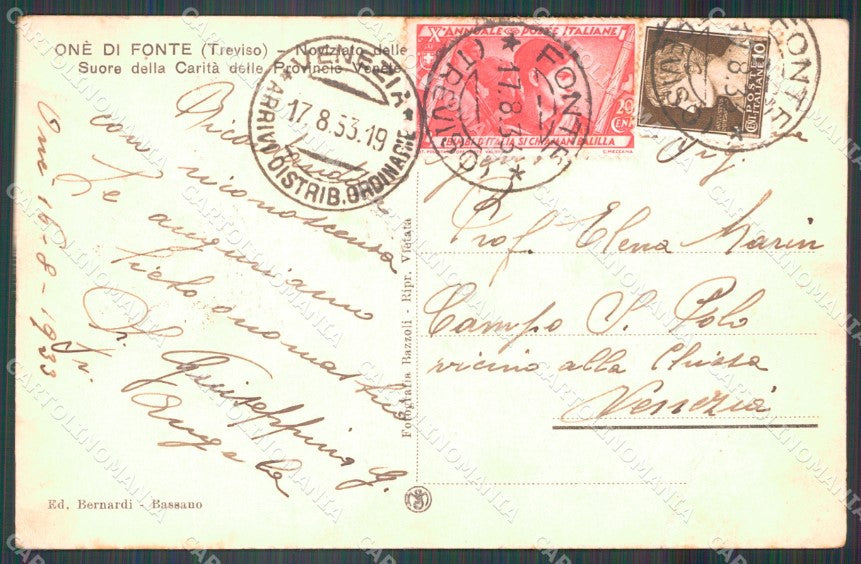 ONÈ DI FONTE (Treviso) - Noviziato delle
Suore della Carità delle Provincie Venete
VENEZIA
ARRIVI DISTRIB. ORDINARIE
17.8.33.19
Xº ANNUALE POSTE ITALIANE
20
CENT
D'ITALIA SI CHIAMAN BALILLA
C. MEZZANA
FONTE
(TREVISO)
17.8.33
POSTE
ITALIANE
10
FONTE
Onè 16-8-1933
con riconoscenza
Le auguriamo
lieto onomastico
Sr. Giuseppina g.
Sr. Angela
Fotografia Bazzoli - Ripr. Vietata
Sig.
Prof. Elena Marin
Campo S. Polo
vicino alla Chiesa
Venezia
Ed. Bernardi - Bassano
CARTOLINOMANIA